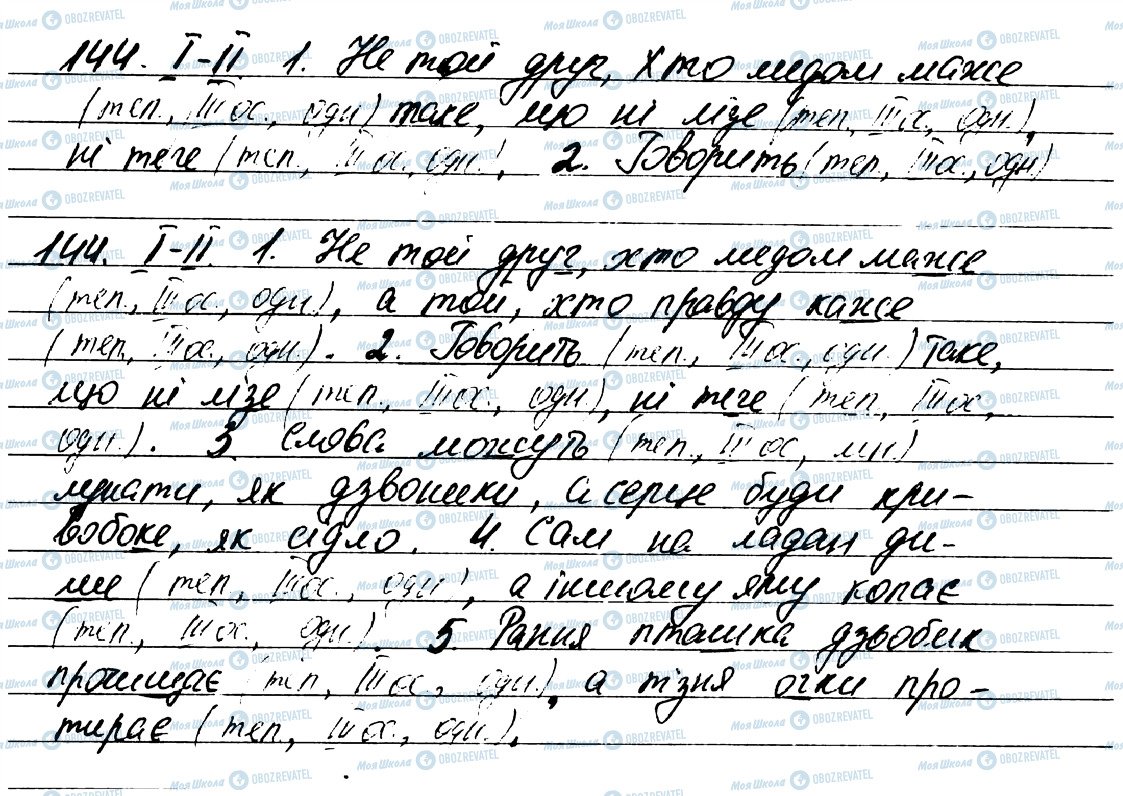 144. І-ІІ 1. Не той друг, хто медом маже
(теп., ІІІ ос., одн) таке, що ні лізе (теп., ІІІ ос., одн.),
ні тече (теп., ІІІ ос., одн.), 2. Говорить (теп., ІІІ ос., одн)
144. І-ІІ. 1. Не той друг, хто медом маже
(теп., ІІІ ос., одн.), а той, хто правду каже
(теп., ІІІ ос., одн.). 2. Говорить (теп., ІІІ ос., одн.) таке,
що ні лізе (теп., ІІІ ос., одн), ні тече (теп., ІІІ ос.,
одн.). 3. Слова можуть (теп., ІІІ ос, мн.)
лунати, як дзвоники, а серце буди кри-
вобоке, як сідло. 4. Сам на ладан ди-
ше (теп., ІІІ ос., одн), а іншому яму копає
(теп., ІІІ ос., одн.). 5. Рання пташка дзьобик
прочищає (теп., ІІІ ос., одн.), а пізня очки про-
тирає (теп., ІІІ ос., одн.).